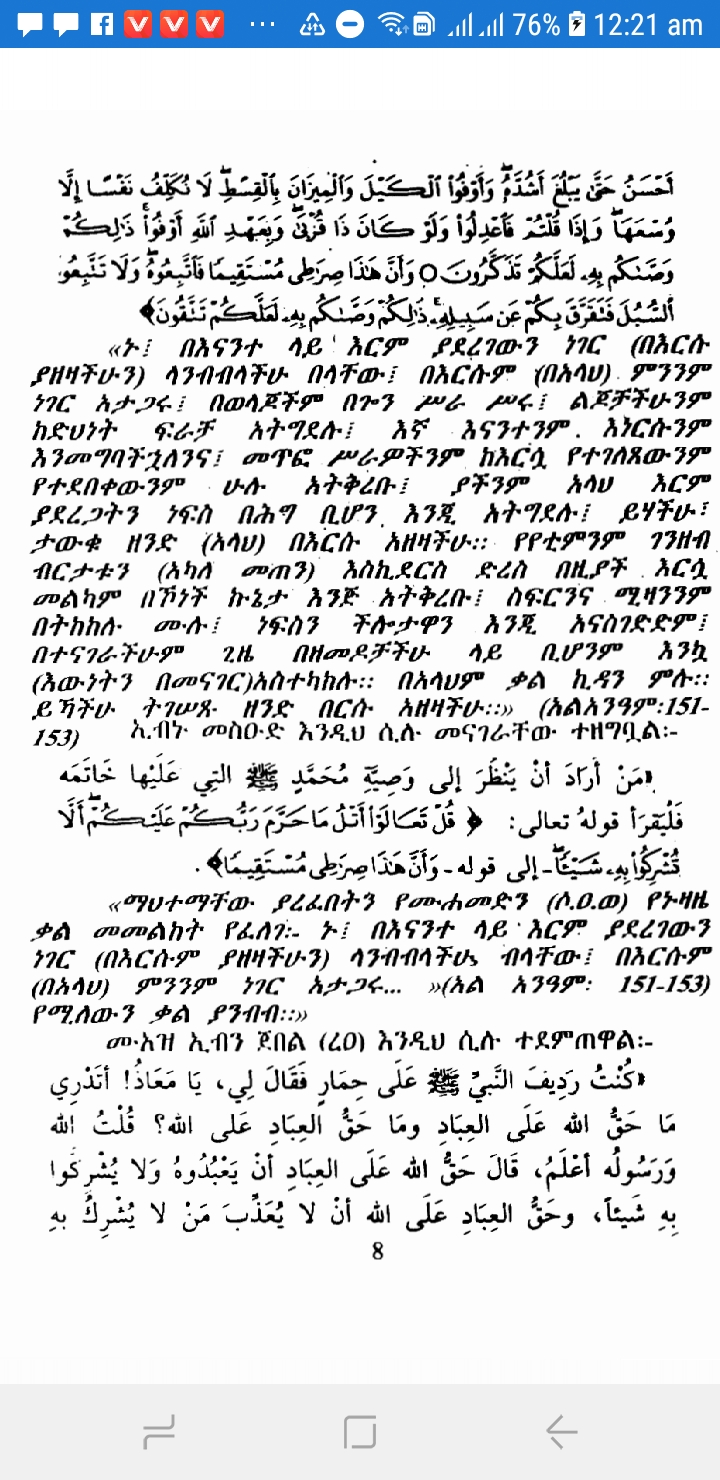 76% 12:21 am
أَحْسَنُ حَتَّىٰ يَبْلُغَ أَشُدَّهُۥ وَأَوْفُوا۟ ٱلْكَيْلَ وَٱلْمِيزَانَ بِٱلْقِسْطِ لَا نُكَلِّفُ نَفْسًا إِلَّا
وُسْعَهَا وَإِذَا قُلْتُمْ فَٱعْدِلُوا۟ وَلَوْ كَانَ ذَا قُرْبَىٰ وَبِعَهْدِ ٱللَّهِ أَوْفُوا۟ ذَٰلِكُمْ
وَصَّىٰكُم بِهِۦ لَعَلَّكُمْ تَذَكَّرُونَ ○ وَأَنَّ هَٰذَا صِرَٰطِى مُسْتَقِيمًا فَٱتَّبِعُوهُ وَلَا تَتَّبِعُوا
ٱلسُّبُلَ فَتَفَرَّقَ بِكُمْ عَن سَبِيلِهِۦ ذَٰلِكُمْ وَصَّىٰكُم بِهِۦ لَعَلَّكُمْ تَتَّقُونَ﴾
«ኑ፤ በእናንተ ላይ እርም ያደረገውን ነገር (በእርሱ
ያዘዛችሁን) ላንብብላችሁ በላቸው፤ በእርሱም (በአላህ) ምንንም
ነገር አታጋሩ፤ በወላጆችም በጐን ሥራ ሥሩ፤ ልጆቻችሁንም
ከድህነት ፍራቻ አትግደሉ፤ እኛ እናንተንም እነርሱንም
እንመግባችኋለንና፤ መጥፎ ሥራዎችንም ከእርሷ የተገለጸውንም
የተደበቀውንም ሁሉ አትቅረቡ፤ ያችንም አላህ እርም
ያደረጋትን ነፍስ በሕግ ቢሆን እንጂ አትግደሉ፤ ይሃችሁ፣
ታውቁ ዘንድ (አላህ) በእርሱ አዘዛችሁ፡፡ የየቲምንም ገንዘብ
ብርታቱን (አካለ መጠን) እስኪደርስ ድረስ በዚያች እርሷ
መልካም በኾነች ኹኔታ እንጅ አትቅረቡ፤ ስፍርንና ሚዛንንም
በትክክሉ ሙሉ፤ ነፍስን ችሎታዋን እንጂ አናስገድድም፤
በተናገራችሁም ጊዜ በዘመዶቻችሁ ላይ ቢሆንም እንኳ
(እውነትን በመናገር)አስተካክሉ፡፡ በአላህም ቃል ኪዳን ምሉ፡፡
ይኻችሁ ትገሠጹ ዘንድ በርሱ አዘዛችሁ፡፡» (አልአንዓም:151-
153) ኢብኑ መስዑድ እንዲህ ሲሉ መናገራቸው ተዘግቧል፡-
«مَنْ أَرَادَ أَنْ يَنْظُرَ إلى وَصِيَّةِ مُحَمَّدٍ ﷺ التي عَلَيْها خَاتَمَه
فَلْيَقرَأ قولهُ تعالى: ﴿ قُلْ تَعَالَوْا۟ أَتْلُ مَا حَرَّمَ رَبُّكُمْ عَلَيْكُمْ أَلَّا
تُشْرِكُوا۟ بِهِۦ شَيْـًٔا - إلى قوله - وَأَنَّ هَٰذَا صِرَٰطِى مُسْتَقِيمًا﴾ .
«ማህተማቸው ያረፈበትን የሙሐመድን (ሶ.ዐ.ወ) የኑዛዜ
ቃል መመልከት የፈለገ፡- ኑ፤ በእናንተ ላይ እርም ያደረገውን
ነገር (በእርሱም ያዘዛችሁን) ላንብብላችሁ ብላቸው፤ በእርሱም
(በአላህ) ምንንም ነገር አታጋሩ... »(አል አንዓም: 151-153)
የሚለውን ቃል ያንብብ፡፡»
ሙአዝ ኢብን ጀበል (ረዐ) እንዲህ ሲሉ ተደምጠዋል፡-
«كُنْتُ رَدِيفَ النَّبيِّ ﷺ عَلَى حِمَارٍ فَقَالَ لِي، يَا مَعَاذُ! أتَدْرِي
مَا حَقُّ الله عَلَى العِبَادِ ومَا حَقُّ العِبَادِ عَلى الله؟ قُلْتُ الله
وَرَسُولُه أعْلَمُ، قَالَ حَقُّ الله عَلَى العِبَادِ أنْ يَعْبُدُوهُ وَلا يُشْرِكُوا
بِهِ شَيئاً، وحَقُّ العِبَادِ عَلَى الله أنْ لا يُعَذِّبَ مَنْ لا يُشْرِكُ بهِ
8